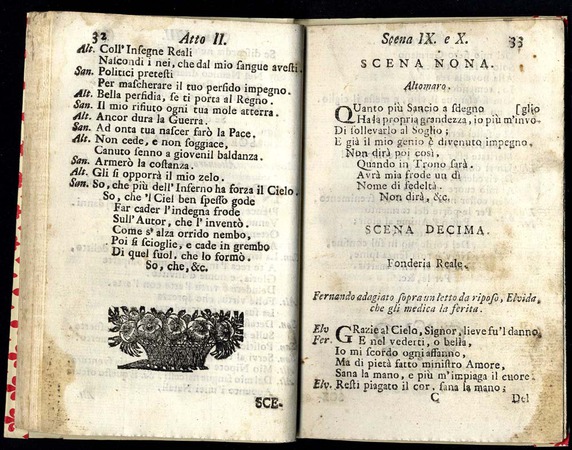 32 Atto II.
Alt. Coll' Insegne Reali
Nascondi i nei, che dal mio sangue avesti.
San. Politici pretesti
Per mascherare il tuo perfido impegno.
Alt. Bella perfidia, se ti porta al Regno.
San. Il mio rifiuto ogni tua mole atterra.
Alt. Ancor dura la Guerra.
San. Ad onta tua nascer farò la Pace.
Alt. Non cede, e non soggiace,
Canuto senno a giovenil baldanza.
San. Armerò la costanza.
Alt. Gli si opporrà il mio zelo.
San. So, che più dell' Inferno ha forza il Cielo.
So, che 'l Ciel ben spesso gode
Far cader l'indegna frode
Sull' Autor, che l' inventò.
Come s' alza orrido nembo,
Poi si scioglie, e cade in grembo
Di quel suol, che lo formò.
So, che, &c.
SCE-
Scena IX. e X. 33
SCENA NONA.
Altomaro.
QUanto più Sancio a sdegno [glio
Ha la propria grandezza, io più m'invo-
Di sollevarlo al Soglio;
E già il mio genio è divenuto impegno.
Non dirà poi così,
Quando in Trono sarà.
Avrà mia frode un dì
Nome di fedeltà.
Non dirà, &c.
SCENA DECIMA.
Fonderia Reale.
Fernando adagiato sopra un letto da riposo, Elvida,
che gli medica la ferita.
Elv GRazie al Cielo, Signor, lieve fu'l danno.
Fer. E nel vederti, o bella,
Io mi scordo ogni affanno,
Ma di pietà fatto ministro Amore,
Sana la mano, e più m'impiaga il cuore.
Elv. Resti piagato il cor, sana la mano:
C Del